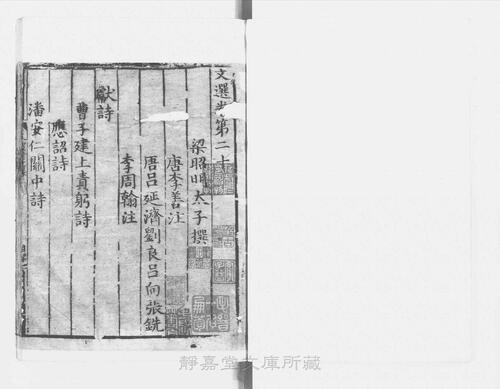 文選卷第二十
梁昭明太子撰
唐李善注
唐呂延濟劉良呂向張銑
李周翰注
獻詩
曹子建上責躬詩
應詔詩
潘安仁關中詩
靜嘉堂文庫所藏